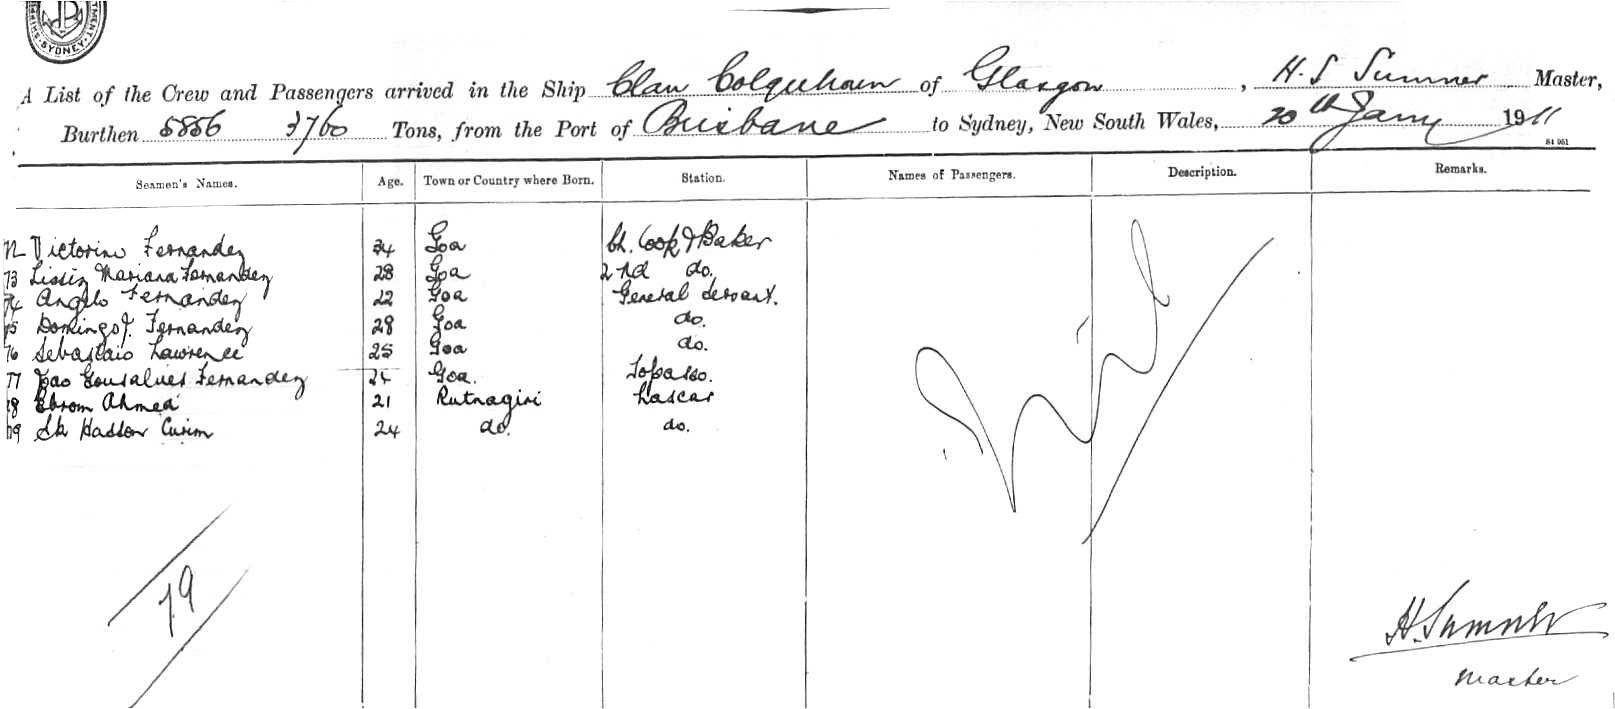 SYDNEY
A List of the Crew and Passengers arrived in the Ship Clan Colquhoun of Glasgow, H. S Sumner Master,
Burthen 5856 3760 Tons, from the Port of Brisbane to Sydney, New South Wales, 20th Jany 1911
Seamen's Names. Age. Town or Country where Born. Station. Names of Passengers. Description. Remarks.
72 Victorino Fernandez 34 Goa Ch. Cook & Baker
73 Mariana Fernandez 28 Goa 2nd do.
74 Angelo Fernandez 22 Goa General Servant.
75 Domingo J. Fernandez 28 Goa do.
76 Sebastaio Lawrence 25 Goa do.
77 Joao Gonsalves Fernandez 24 Goa. Topasso.
78 Ebrom Ahmed 21 Rutnagiri Lascar
79 Sk Hasson Curim 24 do. do.
Nil
79
H. Sumner
Master